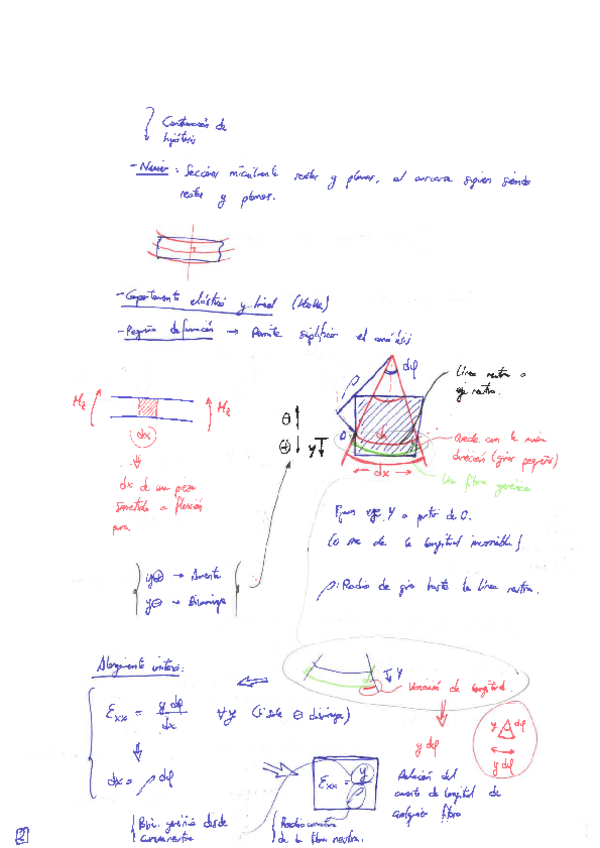 Continuación de
hipótesis
- Navier: Secciones inicialmente rectas y planas, al curvarse siguen siendo
rectas y planas.
- Comportamiento elástico y lineal (Hooke)
- Pequeña deformación → Permite simplificar el análisis
dφ
ρ
Línea neutra o
eje neutro.
Mz
Mz
⊖
⊕ y
O
dx
dx
Quede con la misma
dirección (giros pequeños)
Una fibra genérica
dx
dx de una pieza
sometida a flexión
pura.
eje y a partir de O.
(O sea de la longitud invariable)
y⊕ → Aumenta
y⊖ → Disminuye
ρ: Radio de giro hasta la línea neutra.
Alargamiento unitario:
y
Variación de longitud
εxx = y dφ / dx
∀y (si sale ⊖ disminuye)
y dφ
y dφ
y dφ
dx = ρ dφ
εxx = y / ρ
Relación del
aumento de longitud de
cualquier fibra
genérica desde
curva neutra
Radio curvatura
de la fibra neutra.
2